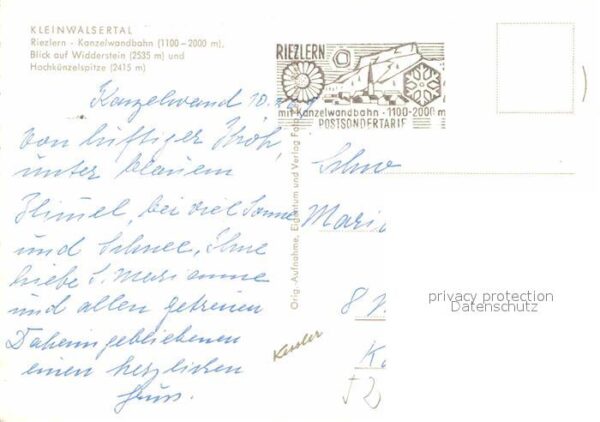 KLEINWALSERTAL
Riezlern - Kanzelwandbahn (1100-2000 m),
Blick auf Widderstein (2535 m) und
Hochkünzelspitze (2415 m)
RIEZLERN
mit Kanzelwandbahn - 1100-2000 m
POSTSONDERTARIF
Kanzelwand 10.
Von luftiger Höh,
unter blauem
Himmel, bei viel Sonne
und Schnee, Ihne
liebe S. Marianne
und allen getreuen
Daheimgebliebenen
einen herzlichen
Gruss.
Orig.-Aufnahme, Eigentum und Verlag
Schw
Maria
8
Kessler
privacy protection
Datenschutz